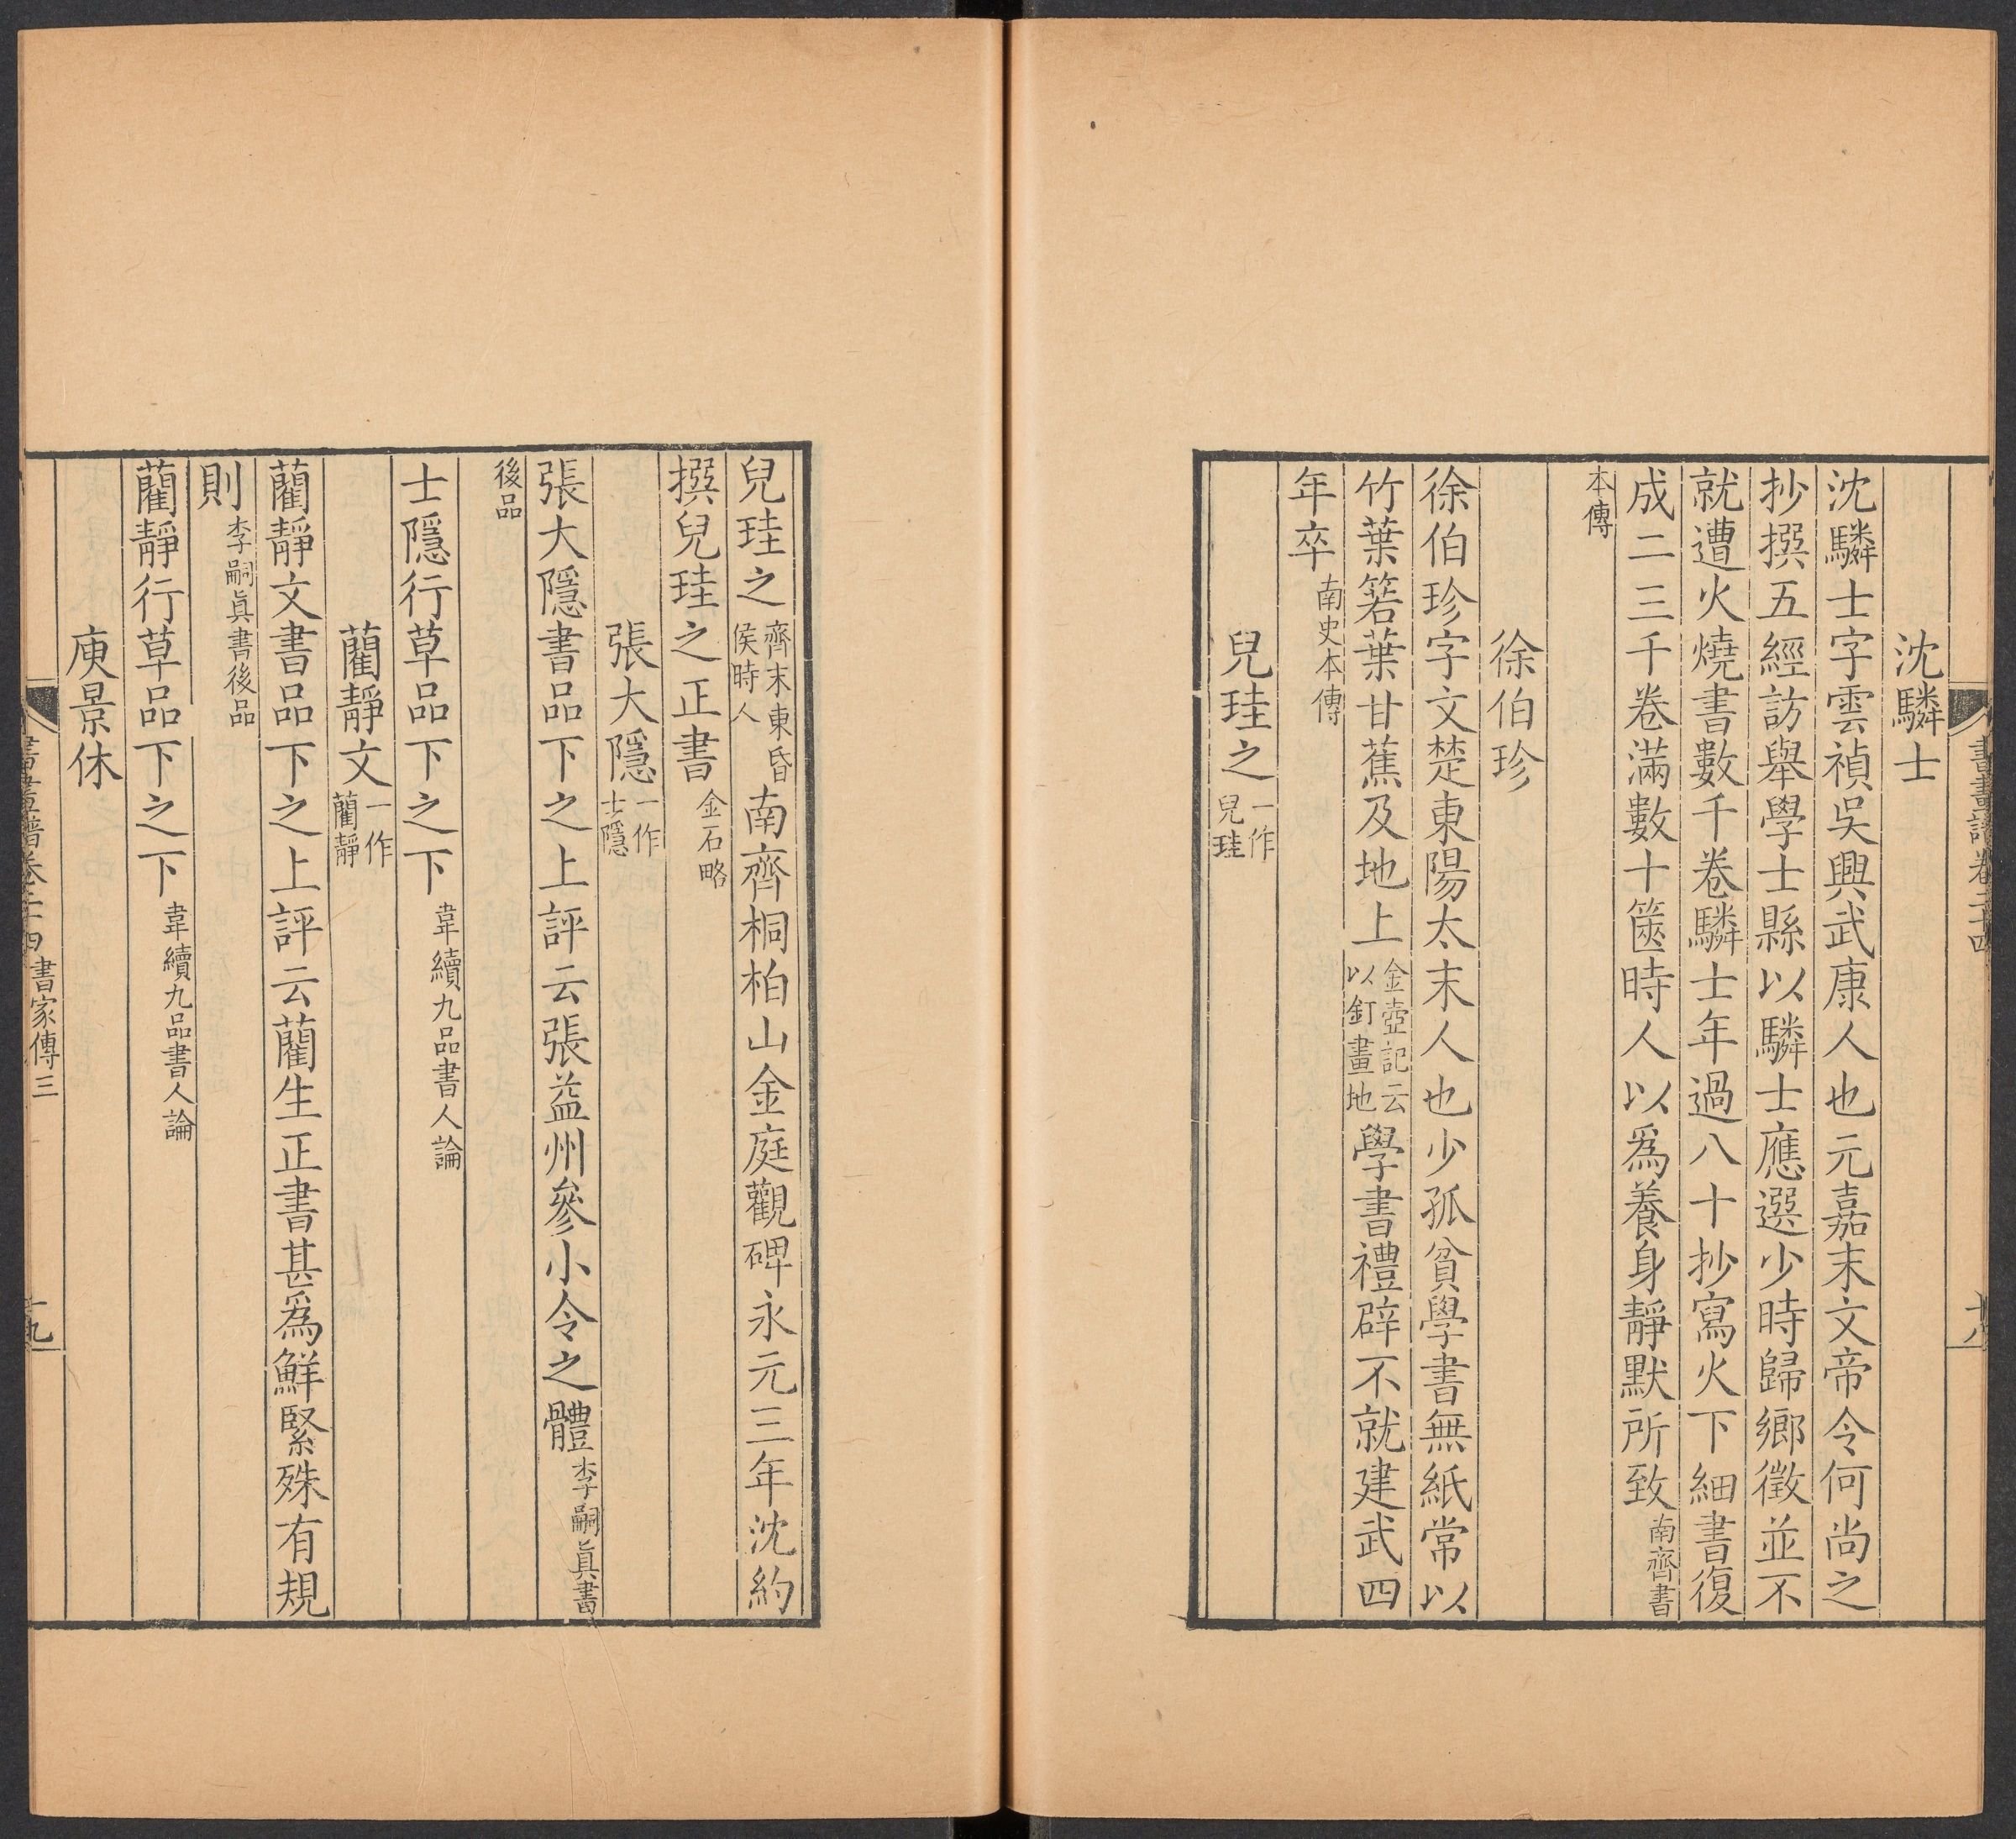 書畫譜卷二十四
十八
沈驎士
沈驎士字雲禎吳興武康人也元嘉末文帝令何尚之
抄撰五經訪舉學士縣以驎士應選少時歸鄉徵並不
就遭火燒書數千卷驎士年過八十抄寫火下細書復
成二三千卷滿數十篋時人以爲養身靜默所致南齊書
本傳
徐伯珍
徐伯珍字文楚東陽太末人也少孤貧學書無紙常以
竹葉箬葉甘蕉及地上金壺記云以釘畫地學書禮辟不就建武四
年卒南史本傳
兒珪之一作兒珪
兒珪之齊末東昏侯時人南齊桐柏山金庭觀碑永元三年沈約
撰兒珪之正書金石略
張大隱一作士隱
張大隱書品下之上評云張益州參小令之體李嗣眞書
後品
士隱行草品下之下韋續九品書人論
藺靜文一作藺靜
藺靜文書品下之上評云藺生正書甚爲鮮緊殊有規
則李嗣眞書後品
藺靜行草品下之下韋續九品書人論
庾景休
書畫譜卷二十四 書家傳三
十九